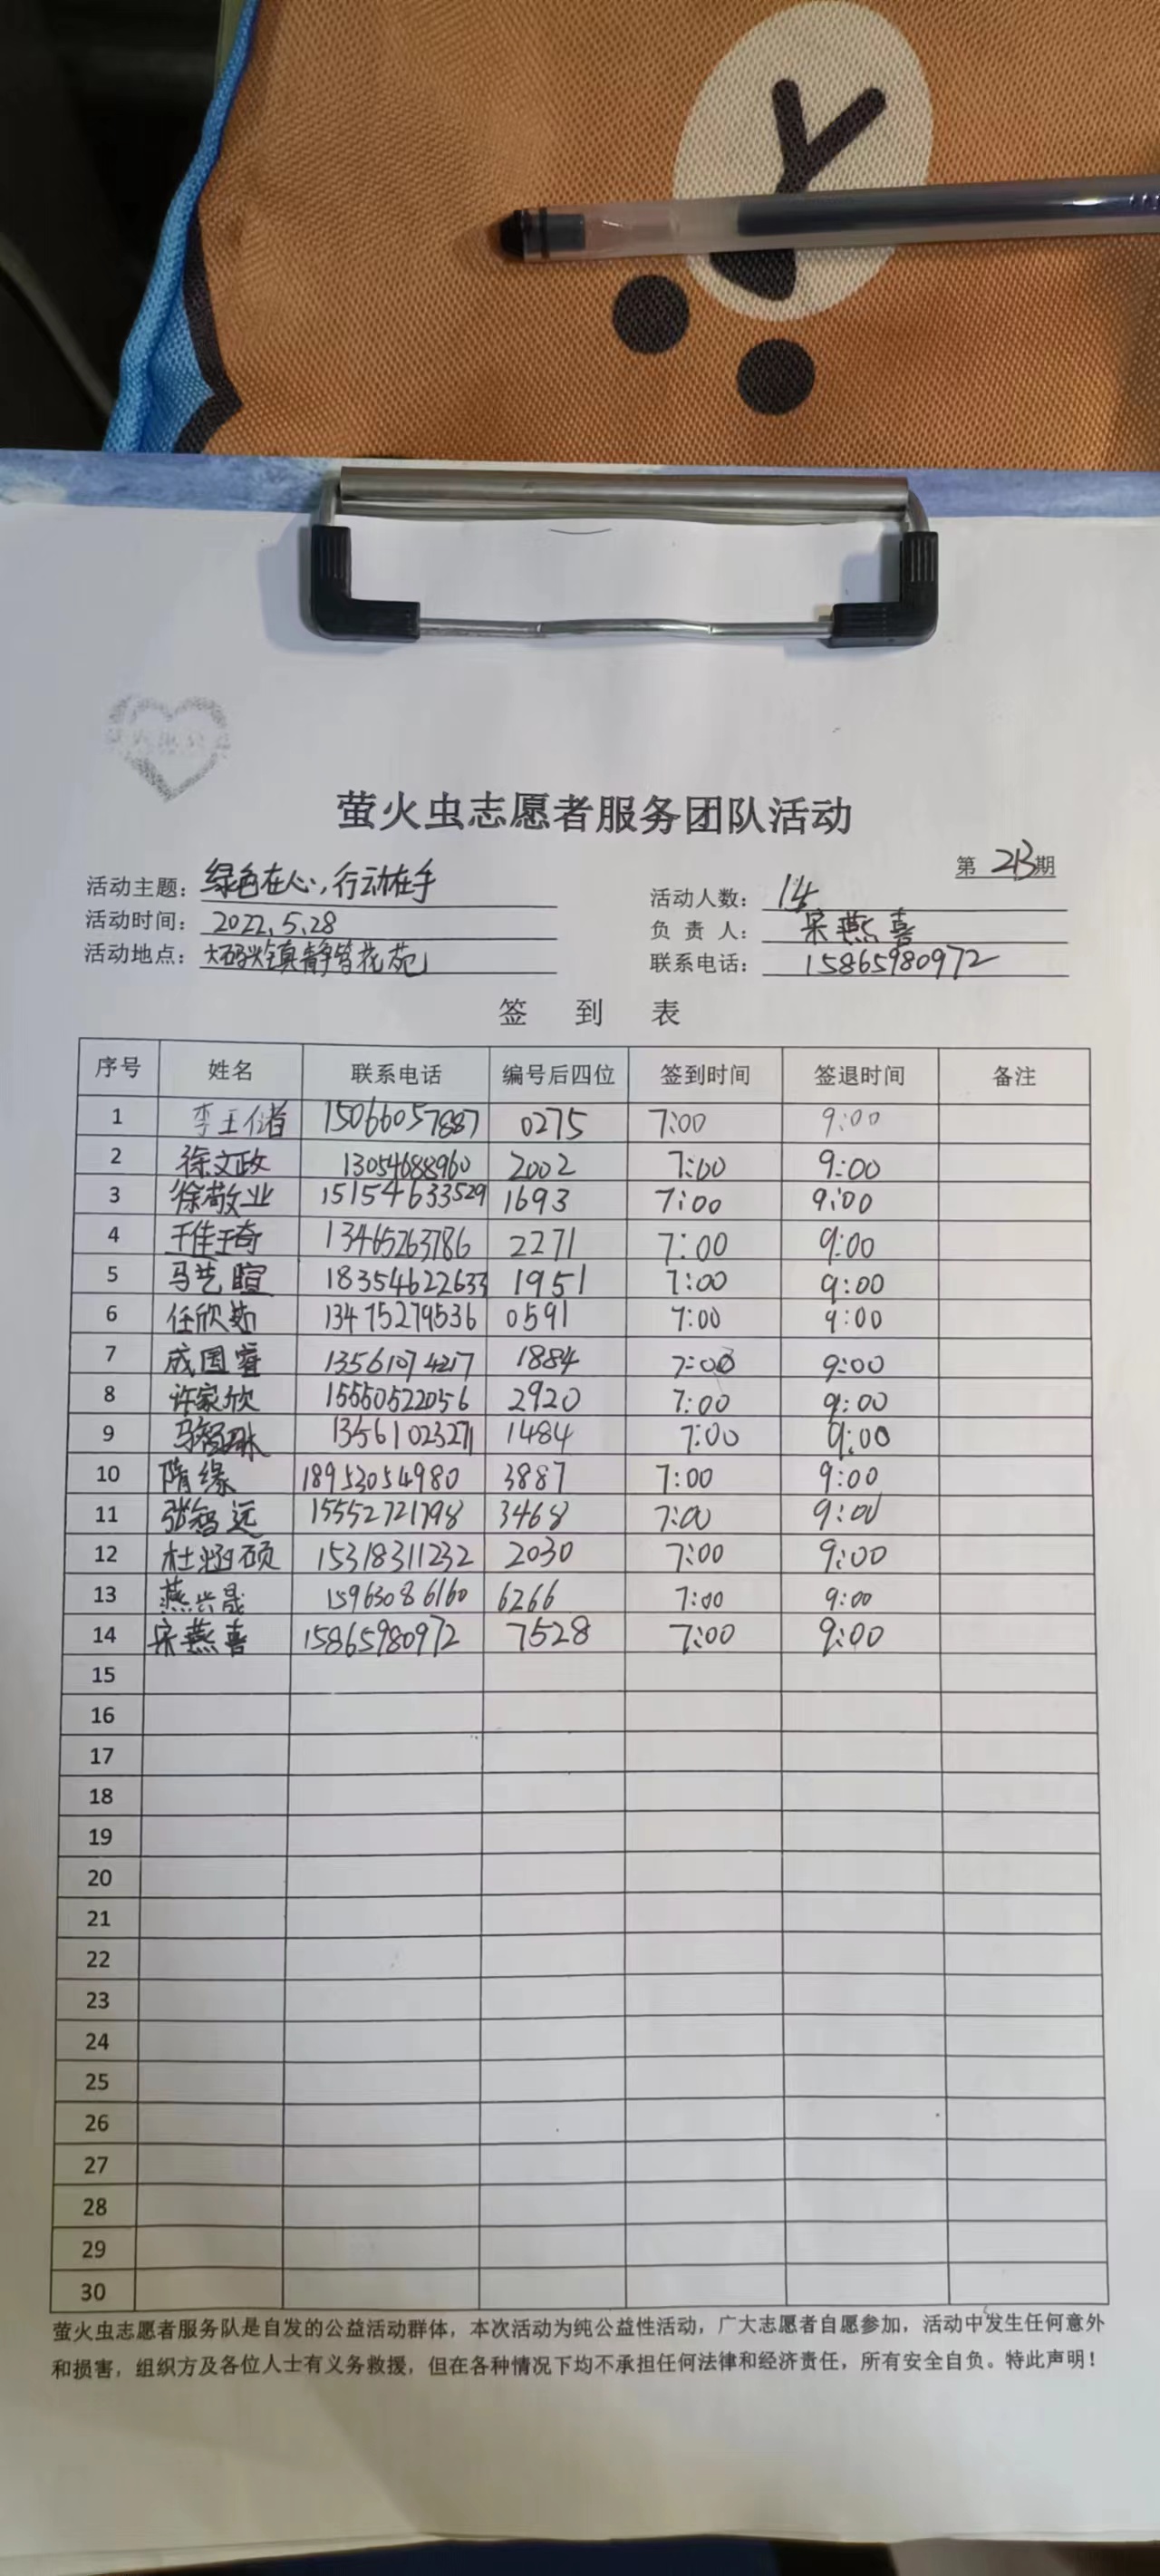 萤火虫志愿者服务团队活动
第 213 期
活动主题：绿色在心，行动在手
活动人数：14
活动时间：2022.5.28
负 责 人：宋燕喜
活动地点：大码头镇静管花苑
联系电话：15865980972
签 到 表
序号 姓名 联系电话 编号后四位 签到时间 签退时间 备注
1 李玉储 15066057887 0275 7:00 9:00
2 徐文政 13054688960 2002 7:00 9:00
3 徐敬业 15154633529 1693 7:00 9:00
4 王佳琦 13465263786 2271 7:00 9:00
5 马艺暄 18354622633 1951 7:00 9:00
6 任欣茹 13475279536 0591 7:00 9:00
7 成国睿 13561074217 1884 7:00 9:00
8 许家欣 15550522056 2920 7:00 9:00
9 13561023271 1484 7:00 9:00
10 隋缘 18953054980 3887 7:00 9:00
11 张智远 15552721798 3468 7:00 9:00
12 杜涵硕 15318311232 2030 7:00 9:00
13 燕兴晟 15963086160 6266 7:00 9:00
14 宋燕喜 15865980972 7528 7:00 9:00
15
16
17
18
19
20
21
22
23
24
25
26
27
28
29
30
萤火虫志愿者服务队是自发的公益活动群体，本次活动为纯公益性活动，广大志愿者自愿参加，活动中发生任何意外
和损害，组织方及各位人士有义务救援，但在各种情况下均不承担任何法律和经济责任，所有安全自负。特此声明！